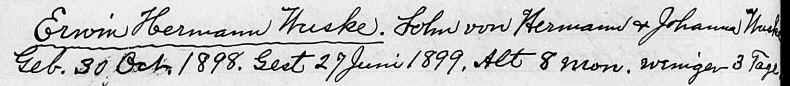 Erwin Hermann Wuske. Sohn von Hermann & Johanna Wuske
Geb. 30 Oct. 1898. Gest 27 Juni 1899. Alt 8 mon. weniger 3 Tage